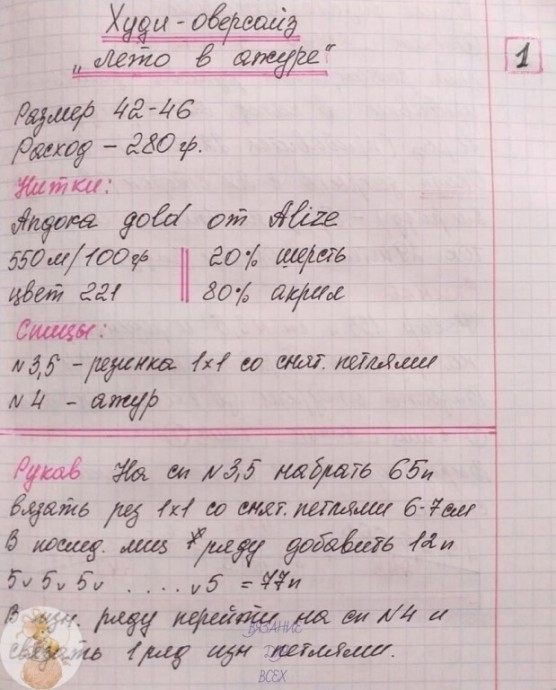 Худи-оверсайз
„Лето в ажуре"
1
Размер 42-46
Расход – 280 гр.
Нитки:
Ангора gold от Alize
550м/100гр
20% шерсть
цвет 221
80% акрил
Спицы:
N 3,5 – резинка 1х1 со снят. петлями
N 4 – ажур
Рукав На сп N 3,5 набрать 65п
вязать рез 1х1 со снят. петлями 6-7см
В послед. лиц ряду добавить 12п
5v 5v 5v ..... v5 = 77п
В изн. ряду перейти на сп N4 и
связать 1 ряд изн петлями.
ВЯЗАНИЕ
ВСЕХ